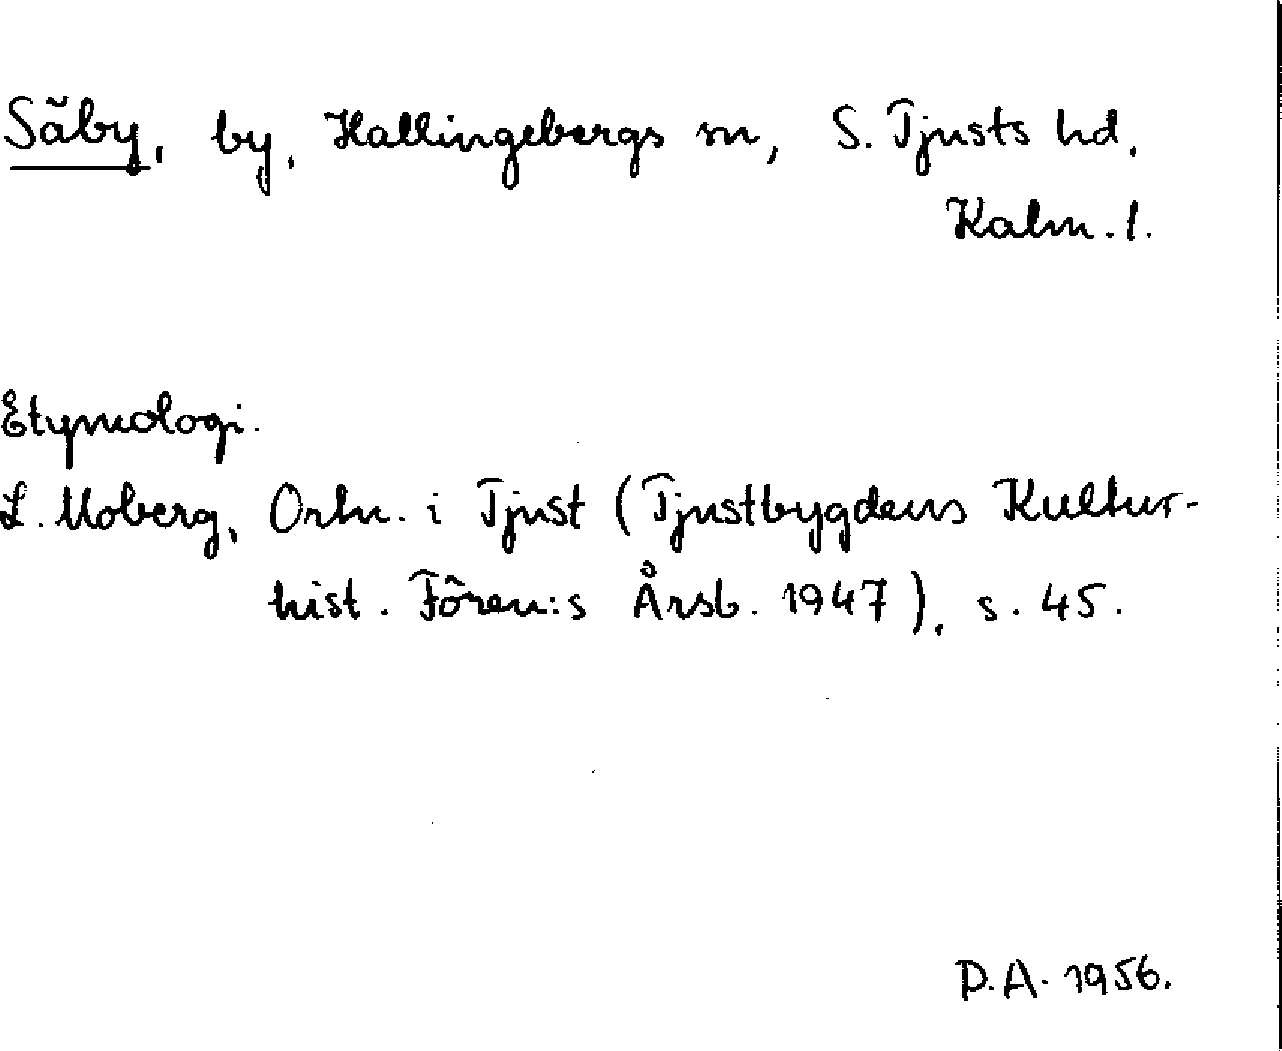 Säby, by, Hallingebergs sn, S. Tjusts hd,
Kalm. l.
Etymologi.
L. Moberg, Ortn. i Tjust (Tjustbygdens Kultur-
hist. Fören:s Årsb. 1947), s. 45.
P.A. 1956.